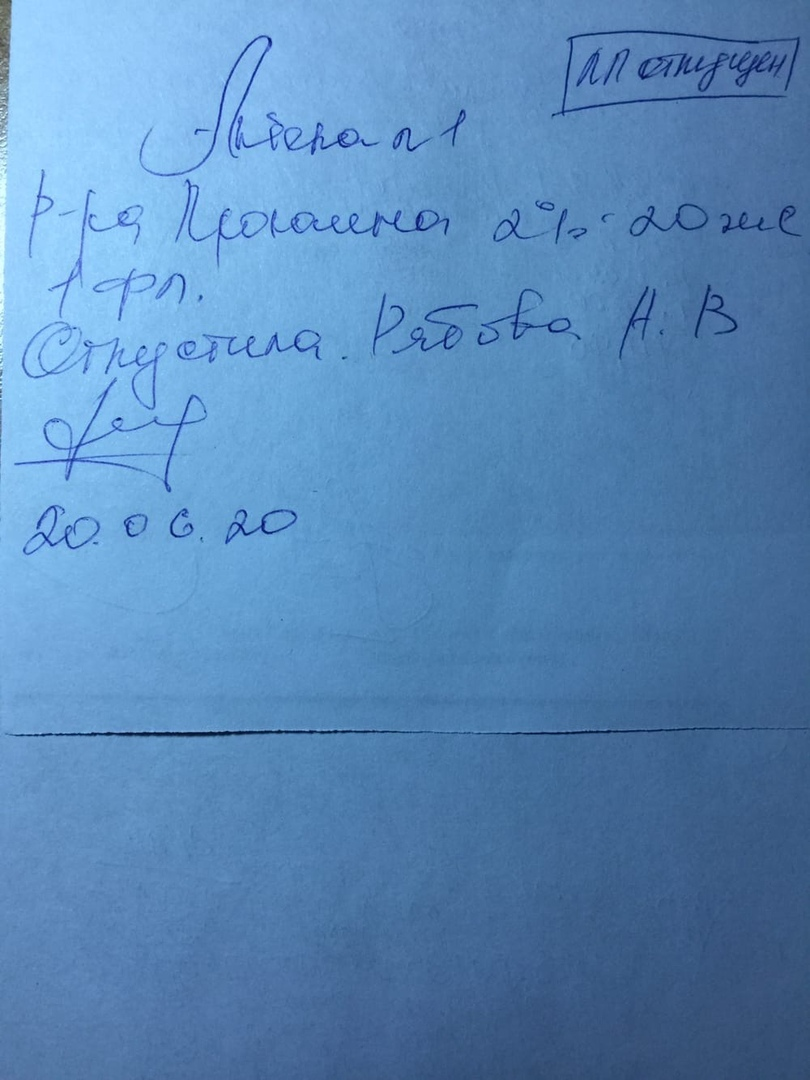 ЛП отпущен
Аптека n 1
Р-ра Прокаина 2% - 20 мл
1 фл.
Отпустила. Рябова А. В
20.06.20